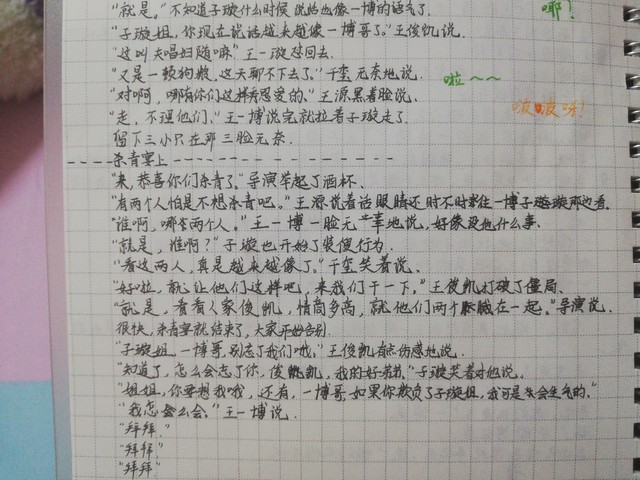 "就是。"不知道子璇什么时候说的也像一博的语气了.
耶!
"子璇姐,你现在说话越来越像一博哥了."王俊凯说.
"这叫夫唱妇随嘛."王一璇怼回去.
"又是一顿狗粮,这天聊不下去了."千玺无奈地说.
啦~~
"对啊,哪有你们这样秀恩爱的."王源黑着脸说.
啵啵呀!
"走,不理他们."王一博说完就拉着子璇走了.
留下三小只在那三脸无奈.
----杀青宴上----------------
"来,恭喜你们杀青了."导演举起了酒杯.
"有两个人怕是不想杀青吧."王源说着话眼睛还时不时往一博子璇那边看.
"谁啊,哪有两个人."王一博一脸无辜地说,好像没他什么事.
"就是,谁啊?"子璇也开始了装傻行为.
"看这两人,真是越来越像了."千玺笑着说.
"好啦,就让他们这样吧,来我们干一下."王俊凯打破了僵局.
"就是,看看人家俊凯,情商多高,就他们两个在一起."导演说.
很快,杀青宴就结束了,大家开始告别.
"子璇姐 一博哥,别忘了我们哦."王俊凯有点伤感地说.
"知道了,怎么会忘了你,俊凯,我的好弟弟."子璇笑着对他说.
"姐姐,你要想我哦,还有,一博哥如果你欺负了子璇姐,我可是会生气的."
"我怎么会."王一博说.
"拜拜."
"拜拜."
"拜拜"